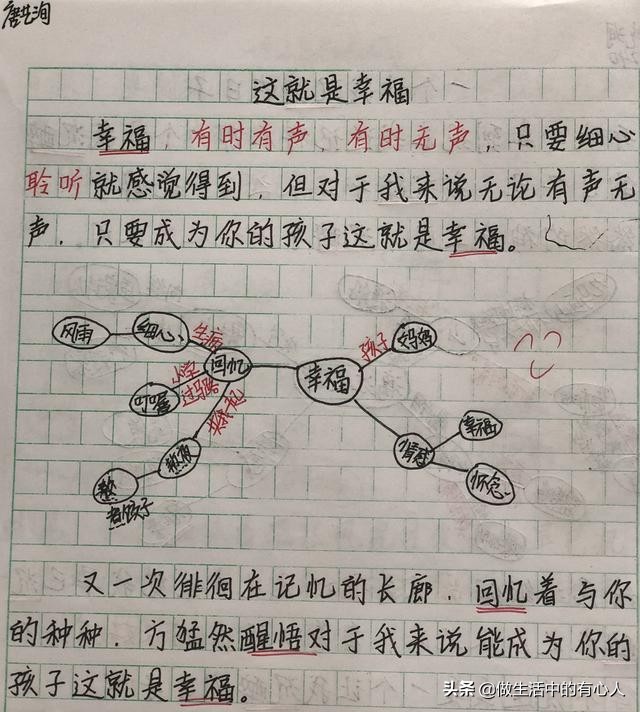 唐艺洵
这就是幸福
幸福，有时有声，有时无声，只要细心
聆听就感觉得到，但对于我来说无论有声无
声，只要成为你的孩子这就是幸福。
风雨 细心 生病 孩子 妈妈
叮嘱 小学 过马路 回忆 幸福
幸福
熬夜 情感
熬 怀念
煮饺子
又一次徘徊在记忆的长廊，回忆着与你
的种种，方猛然醒悟对于我来说能成为你的
孩子这就是幸福。
头条 @做生活中的有心人